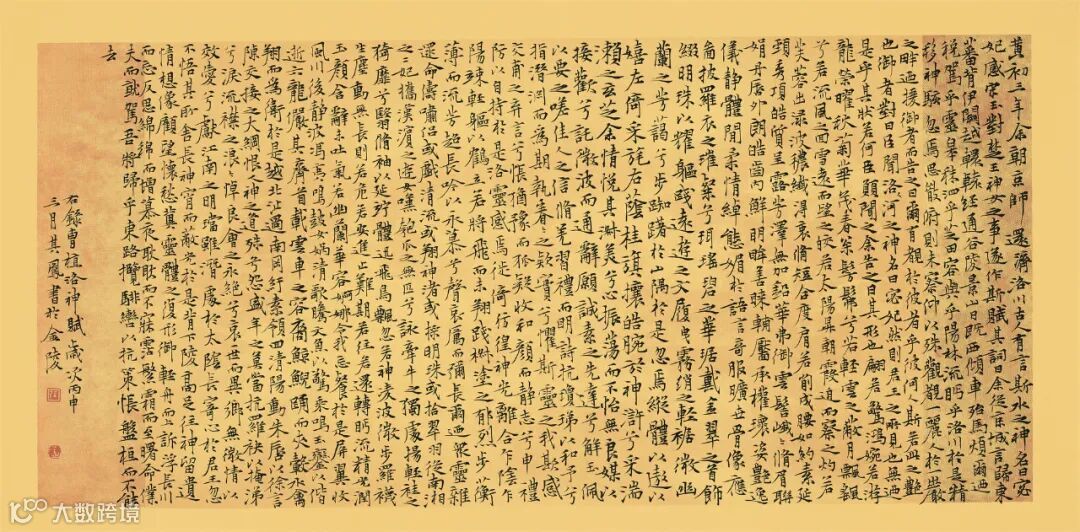 黃初三年余朝京師還濟洛川古人有言斯水之神名曰宓
妃感宋玉對楚王神女之事遂作斯賦其詞曰余從京域言歸東
藩背伊闕越轘轅經通谷陵景山日既西傾車殆馬煩爾迺
稅駕乎蘅皋秣駟乎芝田容與乎陽林流眄乎洛川於是精
移神駭忽焉思散俯則未察仰以殊觀覩一麗人於巖
之畔迺援御者而告之曰爾有覿於彼者乎彼何人斯若此之艷
也御者對曰臣聞河洛之神名曰宓妃然則君王之所見也無迺
是乎其狀若何臣願聞之余告之曰其形也翩若驚鴻婉若游
龍榮曜秋菊華茂春松髣髴兮若輕雲之蔽月飄颻
兮若流風之迴雪遠而望之皎若太陽昇朝霞迫而察之灼若
芙蓉出淥波穠纖得衷脩短合度肩若削成腰如約素延
頸秀項皓質呈露芳澤無加鉛華弗御雲髻峨峨脩眉聯
娟丹脣外朗皓齒內鮮明眸善睞輔靨承權瓌姿艷逸
儀靜體閒柔情綽態媚於語言奇服曠世骨像應
圖披羅衣之璀粲兮珥瑤碧之華琚戴金翠之首飾
綴明珠以耀軀踐遠遊之文履曳霧綃之輕裾微幽
蘭之芳藹兮步踟躕於山隅於是忽焉縱體以遨以
嬉左倚采旄右蔭桂旗攘皓腕於神滸兮采湍
瀨之玄芝余情悅其淑美兮心振蕩而不怡無良媒以
接歡兮託微波而通辭願誠素之先達兮解玉佩
以要之嗟佳人之信脩羌習禮而明詩抗瓊珶以和予兮
指潛淵而為期執眷眷之款實兮懼斯靈之我欺感
交甫之棄言兮悵猶豫而狐疑收和顏而靜志兮申禮
防以自持於是洛靈感焉徙倚彷徨神光離合乍陰乍
陽竦輕軀以鶴立若將飛而未翔踐椒塗之郁烈步蘅
薄而流芳超長吟以永慕兮聲哀厲而彌長爾迺眾靈雜
遝命儔嘯侶或戲清流或翔神渚或採明珠或拾翠羽從南湘
之二妃攜漢濱之游女嘆匏瓜之無匹兮詠牽牛之獨處揚輕袿之
猗靡兮翳脩袖以延佇體迅飛鳧飄忽若神凌波微步羅襪
生塵動無常則若危若安進止難期若往若還轉眄流精光潤
玉顏含辭未吐氣若幽蘭華容婀娜令我忘餐於是屏翳收
風川后靜波馮夷鳴鼓女媧清歌騰文魚以警乘鳴玉鑾以偕
逝六龍儼其齊首載雲車之容裔鯨鯢踊而夾轂水禽
翔而為衛於是越北沚過南岡紆素領迴清陽動朱脣以徐言
陳交接之大綱恨人神之道殊兮怨盛年之莫當抗羅袂以掩涕
兮淚流襟之浪浪悼良會之永絕兮哀一逝而異鄉無微情以
效愛兮獻江南之明璫雖潛處於太陰長寄心於君王忽
不悟其所舍悵神宵而蔽光於是背下陵高足往神留遺
情想像顧望懷愁冀靈體之復形御輕舟而上訴浮長川
而忘反思綿綿而增慕夜耿耿而不寐霑繁霜而至曙命僕
夫而就駕吾將歸乎東路攬騑轡以抗策悵盤桓而不能
去
右錄曹植洛神賦歲次丙申
三月其鳳書於金陵
大数跨境